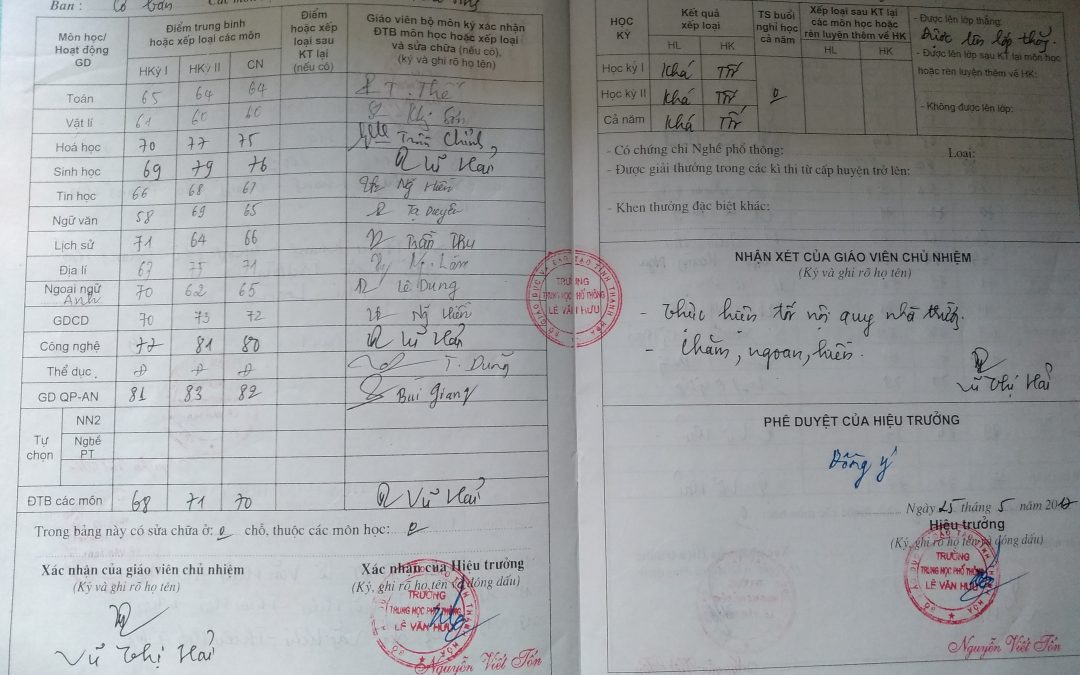 Ban : Cơ bản
Môn học/ Hoạt động GD
Điểm trung bình hoặc xếp loại các môn
HKỳ I HKỳ II CN
Điểm hoặc xếp loại sau KT lại (nếu có)
Giáo viên bộ môn ký xác nhận ĐTB môn học hoặc xếp loại và sửa chữa (nếu có), (ký và ghi rõ họ tên)
Toán 65 64 64 T. Thế
Vật lí 61 60 60
Hoá học 70 77 75 Trần Chinh
Sinh học 69 79 76 Vũ Hải
Tin học 66 68 67 Ng Hiền
Ngữ văn 58 69 65 Tạ Duyên
Lịch sử 71 64 66 Trần Thu
Địa lí 67 75 71
Ngoại ngữ Anh 70 62 65 Lê Dung
GDCD 70 73 72 Ng Hiền
Công nghệ 77 81 80 Vũ Hải
Thể dục Đ Đ Đ T. Dũng
GD QP-AN 81 83 82 Bùi Giang
Tự chọn
NN2
Nghề PT
ĐTB các môn 68 71 70 Vũ Hải
Trong bảng này có sửa chữa ở: 0 chỗ, thuộc các môn học: 0
Xác nhận của giáo viên chủ nhiệm
(Ký và ghi rõ họ tên)
Vũ Thị Hải
Xác nhận của Hiệu trưởng
(Ký, ghi rõ họ tên và đóng dấu)
TRƯỜNG
TRUNG HỌC PHỔ THÔNG
LÊ VĂN HƯU
Nguyễn Viết Tốn
SỞ GIÁO DỤC VÀ ĐÀO TẠO TỈNH THANH HÓA
TRƯỜNG
TRUNG HỌC PHỔ THÔNG
LÊ VĂN HƯU
HỌC KỲ
Kết quả xếp loại
HL HK
TS buổi nghỉ học cả năm
Xếp loại sau KT lại các môn học hoặc rèn luyện thêm về HK
HL HK
Học kỳ I Khá Tốt
Học kỳ II Khá Tốt 0
Cả năm Khá Tốt
- Được lên lớp thẳng:
Được lên lớp thẳng
- Được lên lớp sau KT lại môn học hoặc rèn luyện thêm về HK:
- Không được lên lớp:
- Có chứng chỉ Nghề phổ thông: Loại:
- Được giải thưởng trong các kì thi từ cấp huyện trở lên:
- Khen thưởng đặc biệt khác:
NHẬN XÉT CỦA GIÁO VIÊN CHỦ NHIỆM
(Ký và ghi rõ họ tên)
- Thực hiện tốt nội quy nhà trường.
- Chăm, ngoan, hiền.
Vũ Thị Hải
PHÊ DUYỆT CỦA HIỆU TRƯỞNG
Đồng ý
Ngày 25 tháng 5 năm
Hiệu trưởng
(Ký, ghi rõ họ tên và đóng dấu)
TRƯỜNG
TRUNG HỌC PHỔ THÔNG
LÊ VĂN HƯU
Nguyễn Viết Tốn